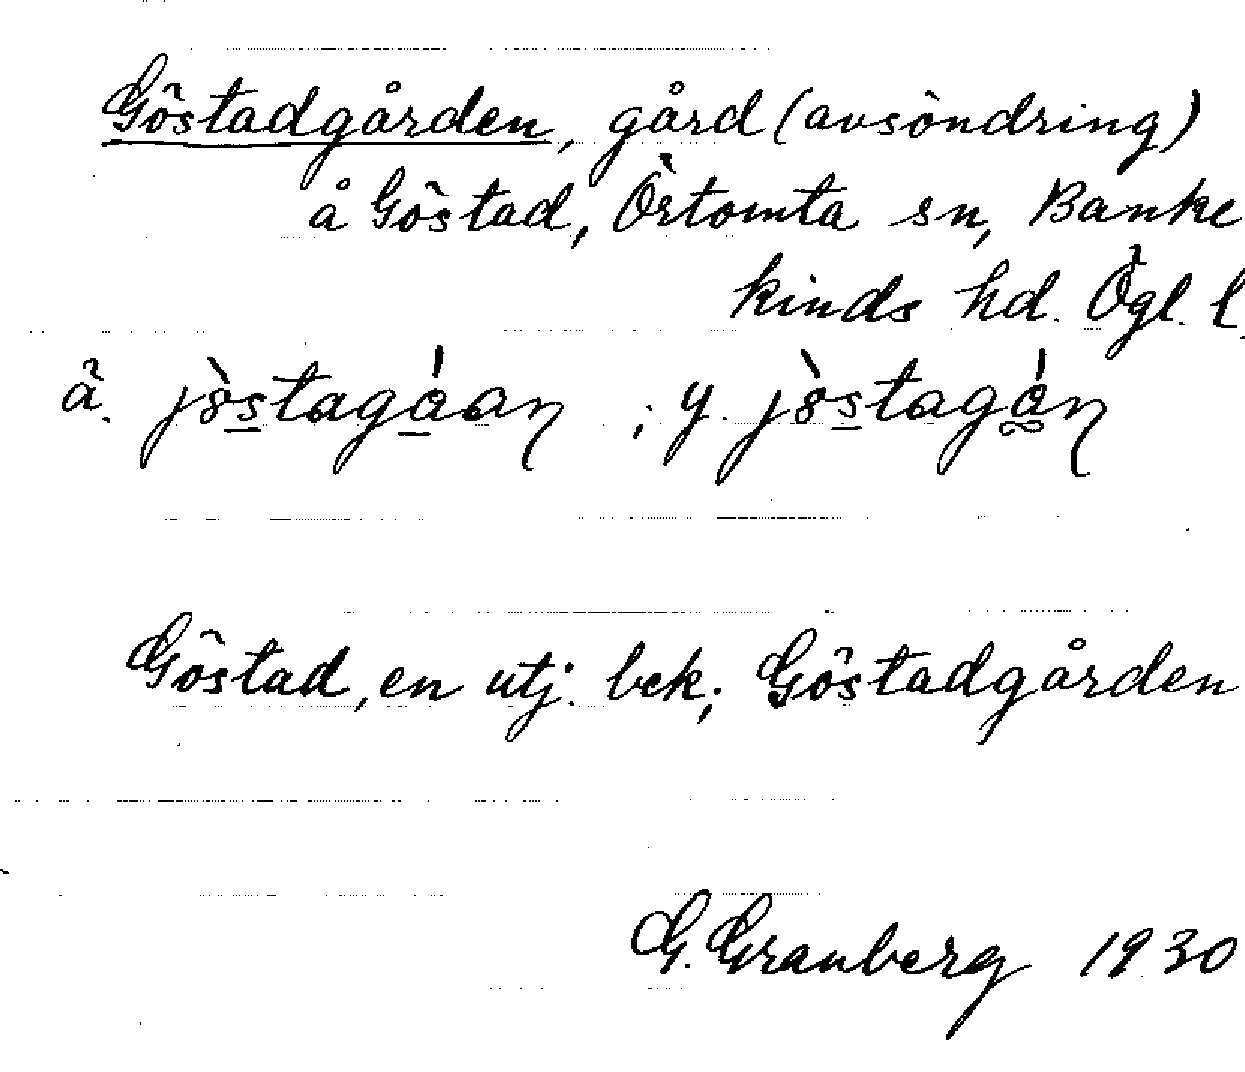 Göstadgården, gård (avsöndring)
å Göstad, Örtomta sn, Banke
kinds hd. Ögl. l.
ä. jö̀stagáan ; y. jö̀stagán
Göstad, en utj. bek; Göstadgården
G. Granberg 1930